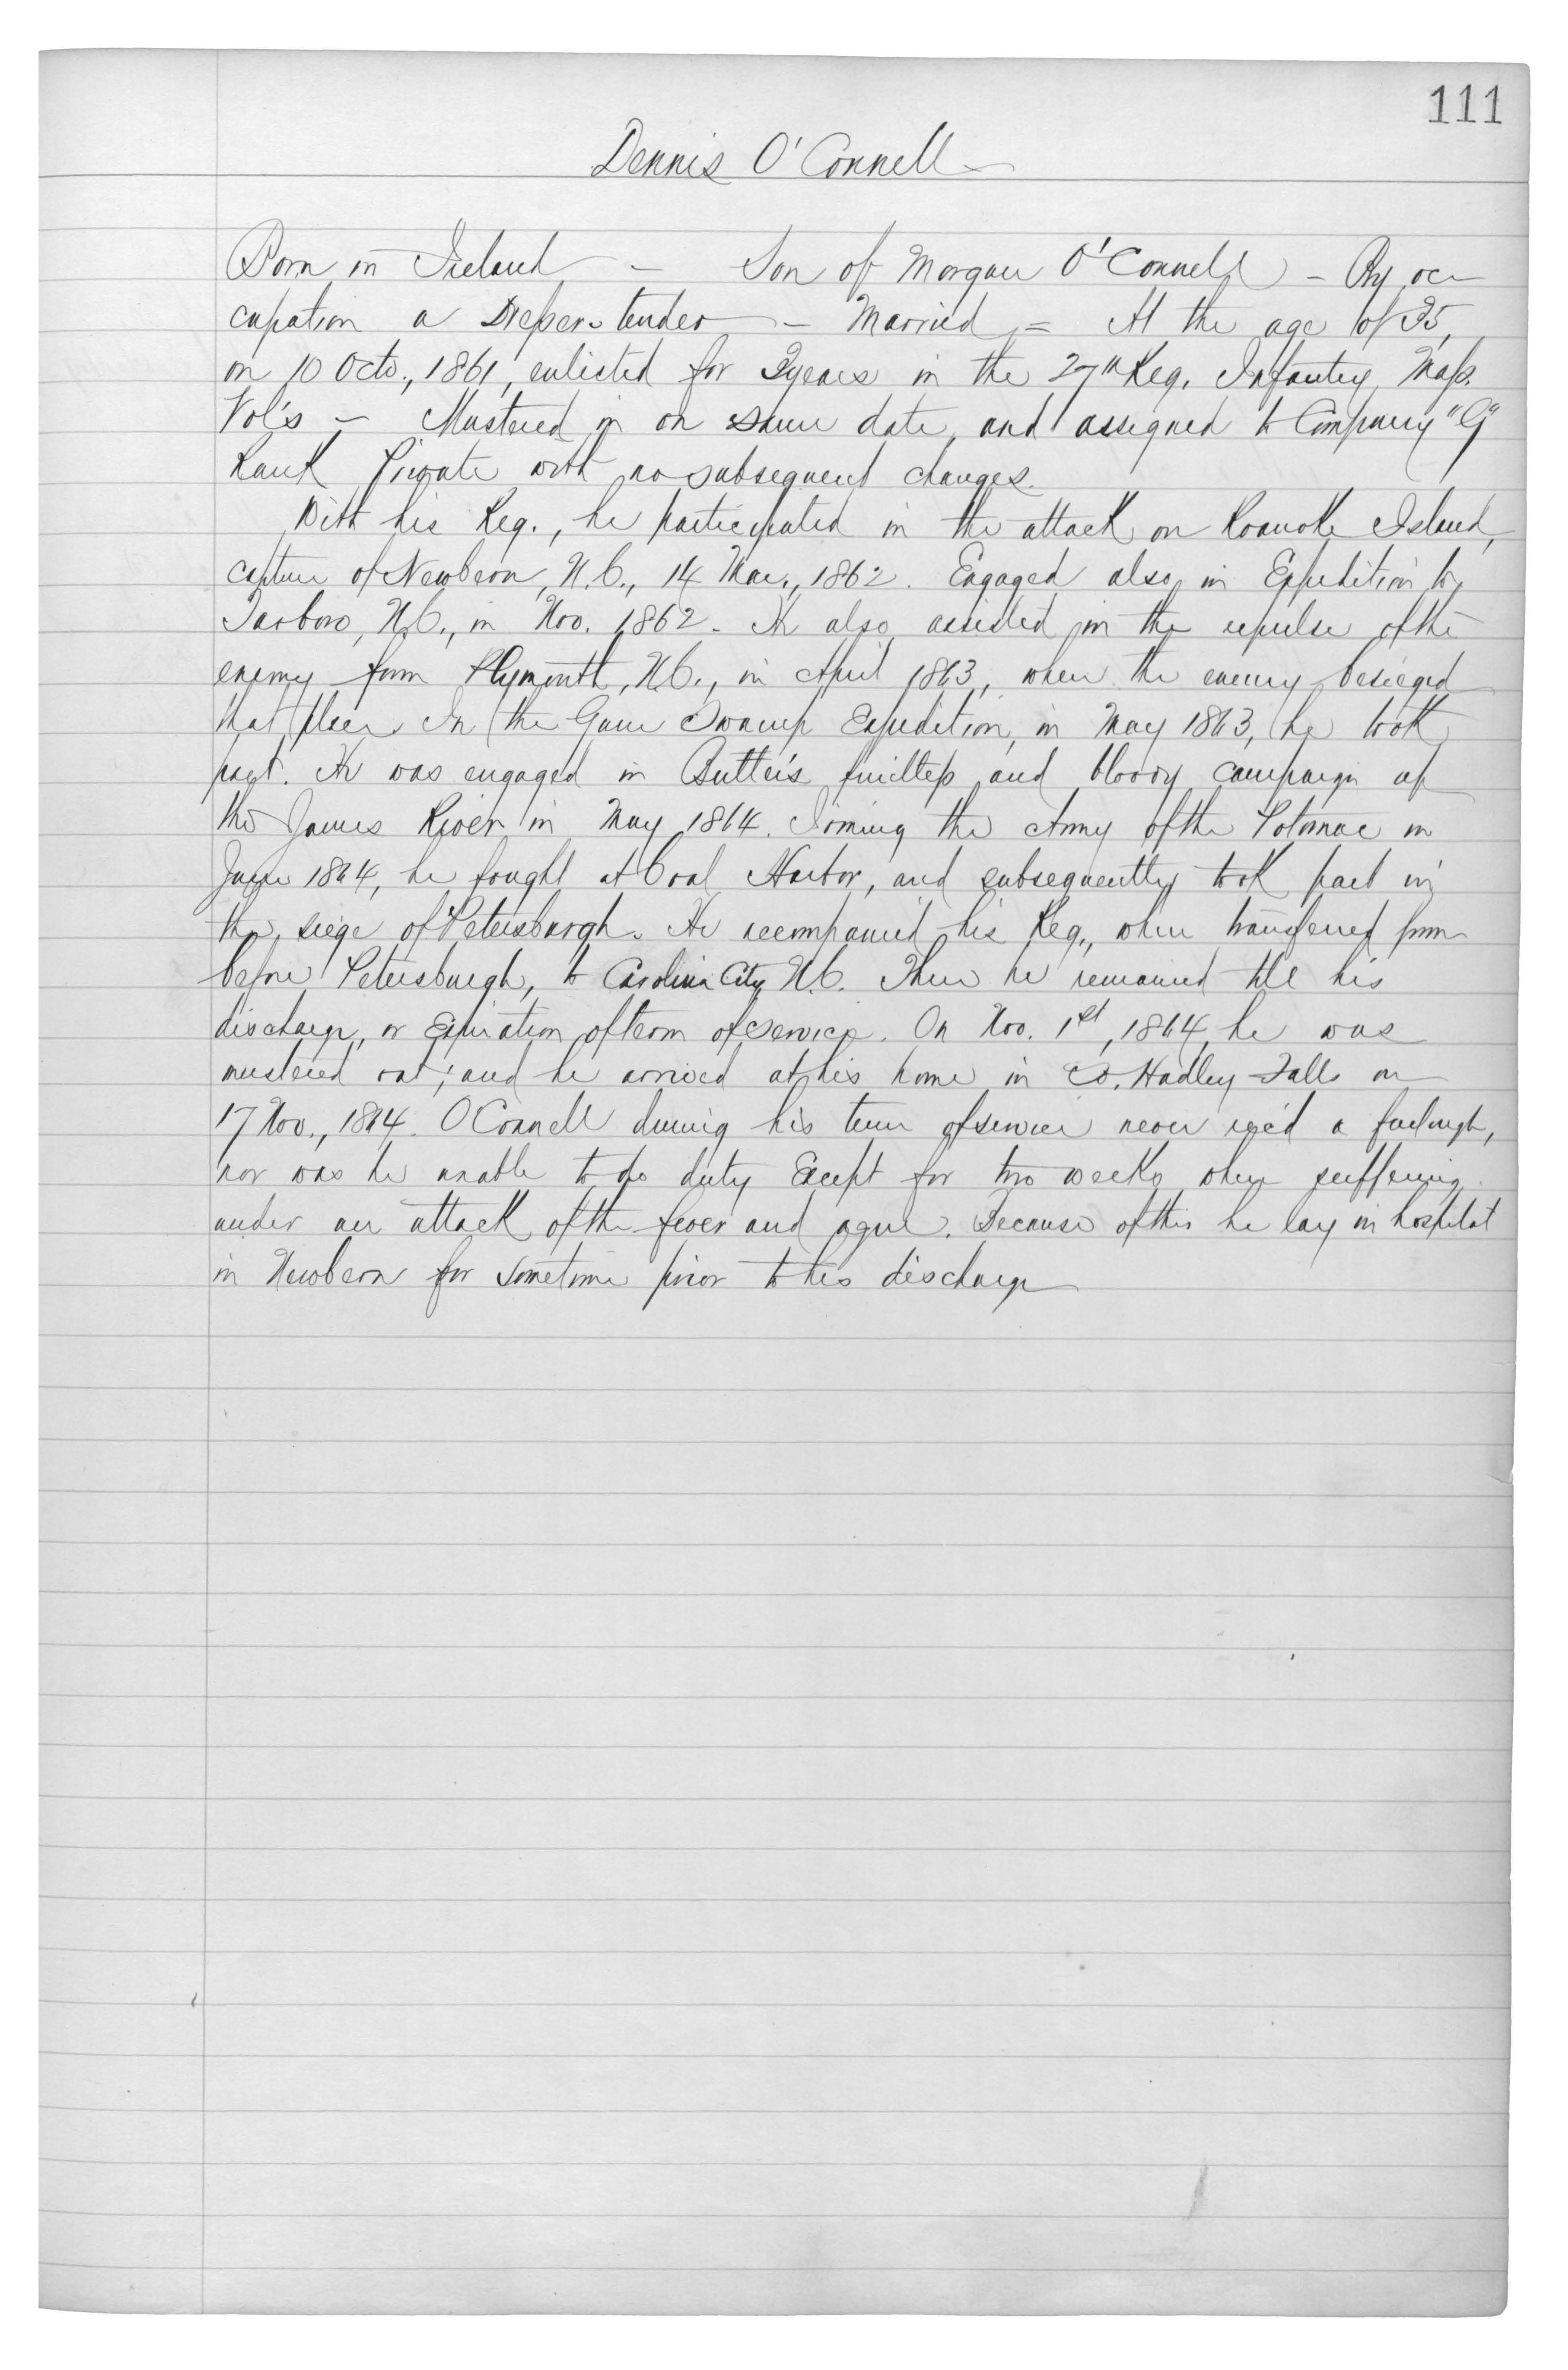 111
Dennis O'Connell
Born in Ireland – Son of Morgan O'Connell – By oc-
cupation a Dresser-tender – Married = At the age of 35,
on 10 Octo., 1861, enlisted for 3 years in the 27th Reg. Infantry Mass.
Vol's – Mustered in on same date, and assigned to Company "G"
Rank Private with no subsequent changes.
With his Reg., he participated in the attack on Roanoke Island,
capture of Newbern, N.C., 14 Mar., 1862. Engaged also in Expedition to
Tarboro, N.C., in Nov. 1862. He also assisted in the repulse of the
enemy from Plymouth, N.C., in April 1863, when the enemy besieged
that place. In the Gum Swamp Expedition, in May 1863, he took
part. He was engaged in Butler's fruitless and bloody campaign up
the James River in May 1864. Joining the Army of the Potomac in
June 1864, he fought at Coal Harbor, and subsequently took part in
the siege of Petersburgh. He accompanied his Reg., when transferred from
before Petersburgh, to Carolina City N.C. There he remained till his
discharge, or Expiration of term of service. On Nov. 1st, 1864, he was
mustered out; and he arrived at his home in So. Hadley Falls on
17 Nov., 1864. O'Connell during his term of service never rec'd a furlough,
nor was he unable to do duty Except for two weeks when suffering
under an attack of the fever and ague. Because of this he lay in hospital
in Newbern for sometime prior to his discharge